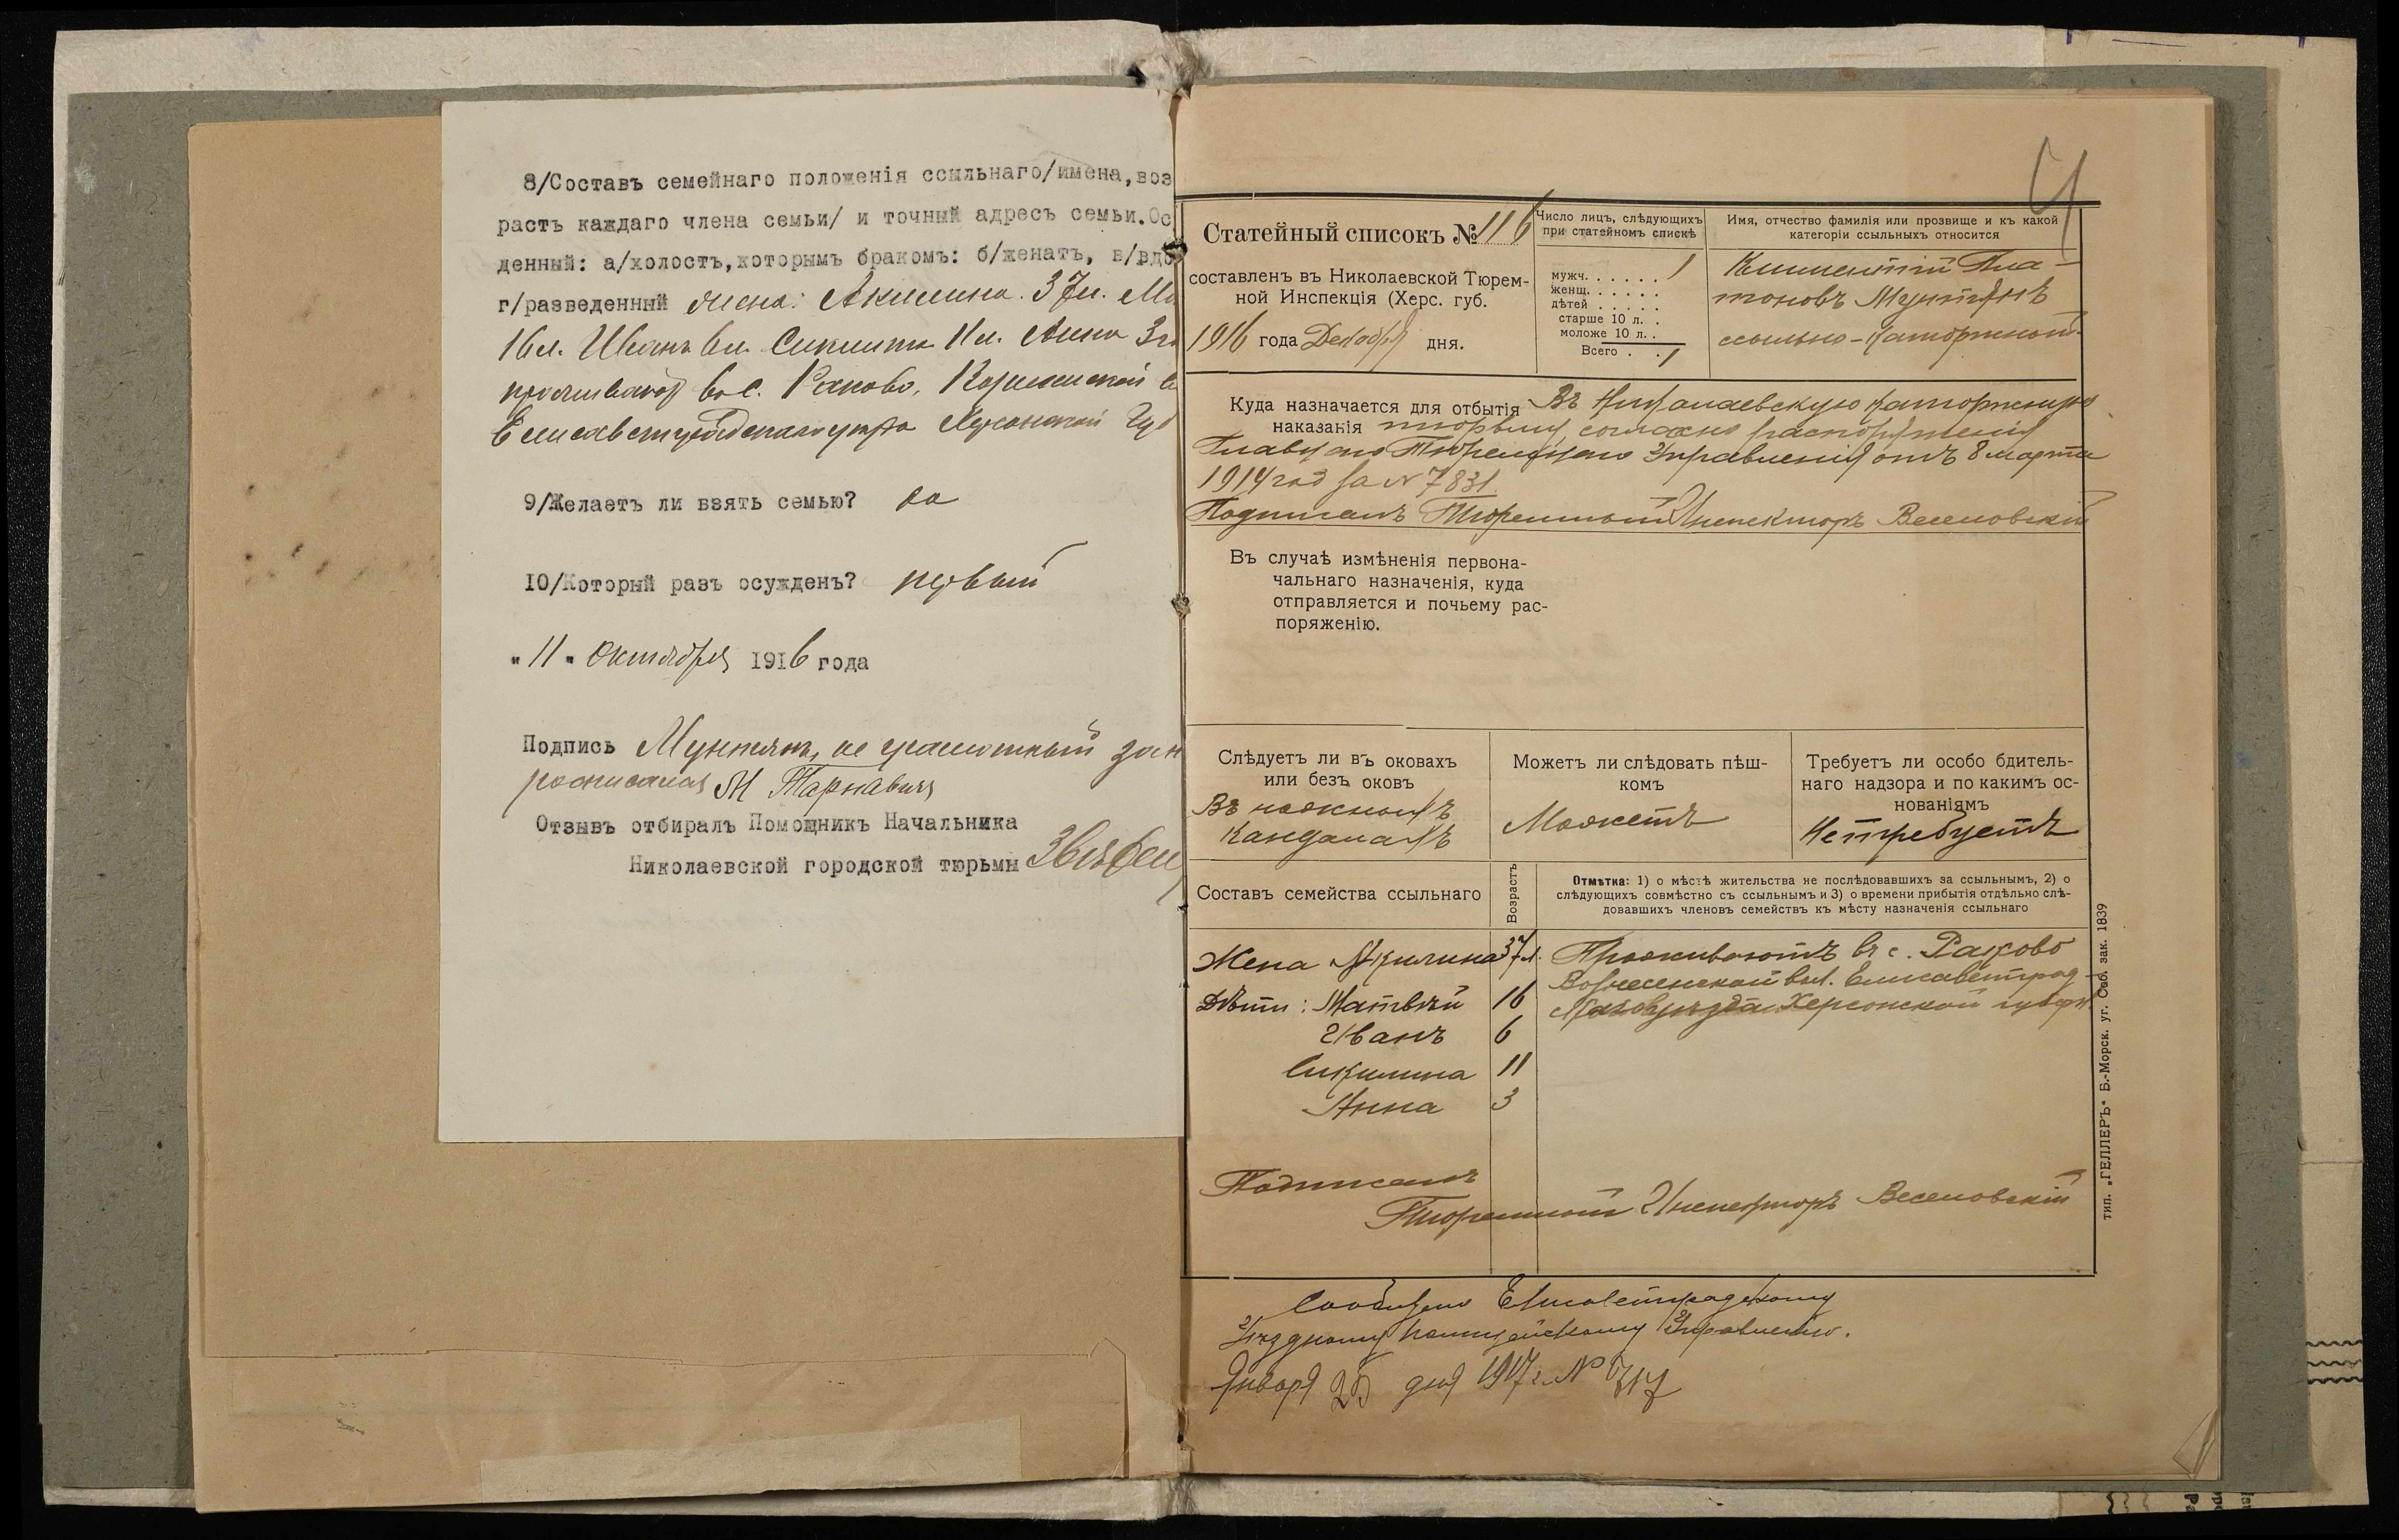 8/Составъ семейнаго положенія ссыльнаго/имена,воз
растъ каждаго члена семьи/ и точный адресъ семьи.Ос
денный: а/холостъ,которымъ бракомъ: б/женатъ, в/вдо
г/разведенный жена: Акилина. 37л. Ма
16л. Иванъ 6л. Сикилина 11л. Анна 3г
проживают въ с. Раково,
Елисаветградскаго уезда Херсонской Губ
9/Желаетъ ли взять семью? да
10/Который разъ осужденъ? первый
"11" Октября 1916 года
Подпись Мунтянъ, не грамотный за н
росписался М Тарнавич
Отзывъ отбиралъ Помощникъ Начальника
Николаевской городской тюрьмы
Статейный списокъ № 116
составленъ въ Николаевской Тюрем-
ной Инспекція (Херс. губ.
1916 года Декабря дня.
Число лицъ, слѣдующихъ
при статейномъ спискѣ
мужч. . . . . . 1
женщ. . . . . .
дѣтей . . . . .
старше 10 л. .
моложе 10 л. .
Всего . . 1
Имя, отчество фамилія или прозвище и къ какой
категоріи ссыльныхъ относится
Климентій Пла-
тоновъ Мунтянъ
ссыльно-каторжный.
4
Куда назначается для отбытія Въ Николаевскую каторжную
наказанія тюрьму, согласно распоряженія
Главнаго Тюремнаго Управленія отъ 8 марта
1914 год за № 7831.
Подписалъ Тюремный Инспекторъ Веселовскій
Въ случаѣ измѣненія первона-
чальнаго назначенія, куда
отправляется и почьему рас-
поряженію.
Слѣдуетъ ли въ оковахъ
или безъ оковъ
Въ ножныхъ
Кандалахъ
Можетъ ли слѣдовать пѣш-
комъ
Можетъ
Требуетъ ли особо бдитель-
наго надзора и по какимъ ос-
нованіямъ
Нетребуетъ
Составъ семейства ссыльнаго
Возрастъ
Отмѣтка: 1) о мѣстѣ жительства не послѣдовавшихъ за ссыльнымъ, 2) о
слѣдующихъ совмѣстно съ ссыльнымъ и 3) о времени прибытія отдѣльно слѣ-
довавшихъ членовъ семействъ къ мѣсту назначенія ссыльнаго
Жена Акилина 37л. Проживаютъ въ с. Раково
Вознесенской вол. Елисаветград-
Дѣти: Матвѣй 16 скаго уѣзда Херсонской губерн.
Иванъ 6
Сикилина 11
Анна 3
Подписалъ
Тюремный Инспекторъ Веселовскій
тип. „ГЕЛЛЕРЪ" Б.-Морск. уг. Соб. зак. 1839
Сообщено Елисаветградскому
Уѣздному Полицейскому Управленію.
Января 25 дня 1917 г. № 717